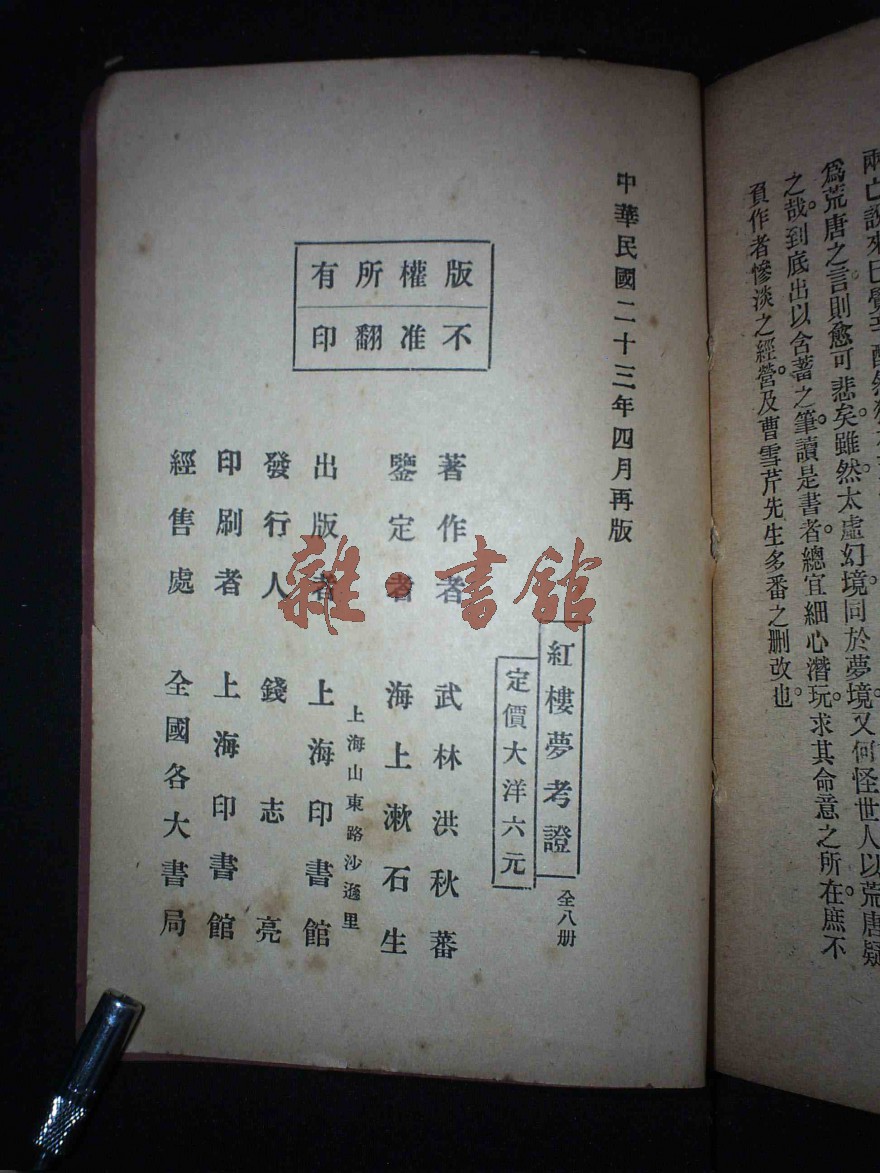 兩亡說來已覺辛酸然
爲荒唐之言則愈可悲矣。雖然太虛幻境。同於夢境。又何怪世人以荒唐疑
之哉。到底出以含蓄之筆。讀是書者。總宜細心潛玩。求其命意之所在。庶不
負作者慘淡之經營。及曹雪芹先生多番之删改也。
中華民國二十三年四月再版
版權所有
不准翻印
紅樓夢考證 全八册
定價大洋六元
著作者 武林洪秋蕃
鑒定者 海上漱石生
上海山東路沙遜里
出版者 上海印書館
發行人 錢志亮
印刷者 上海印書館
經售處 全國各大書局
雜·書館